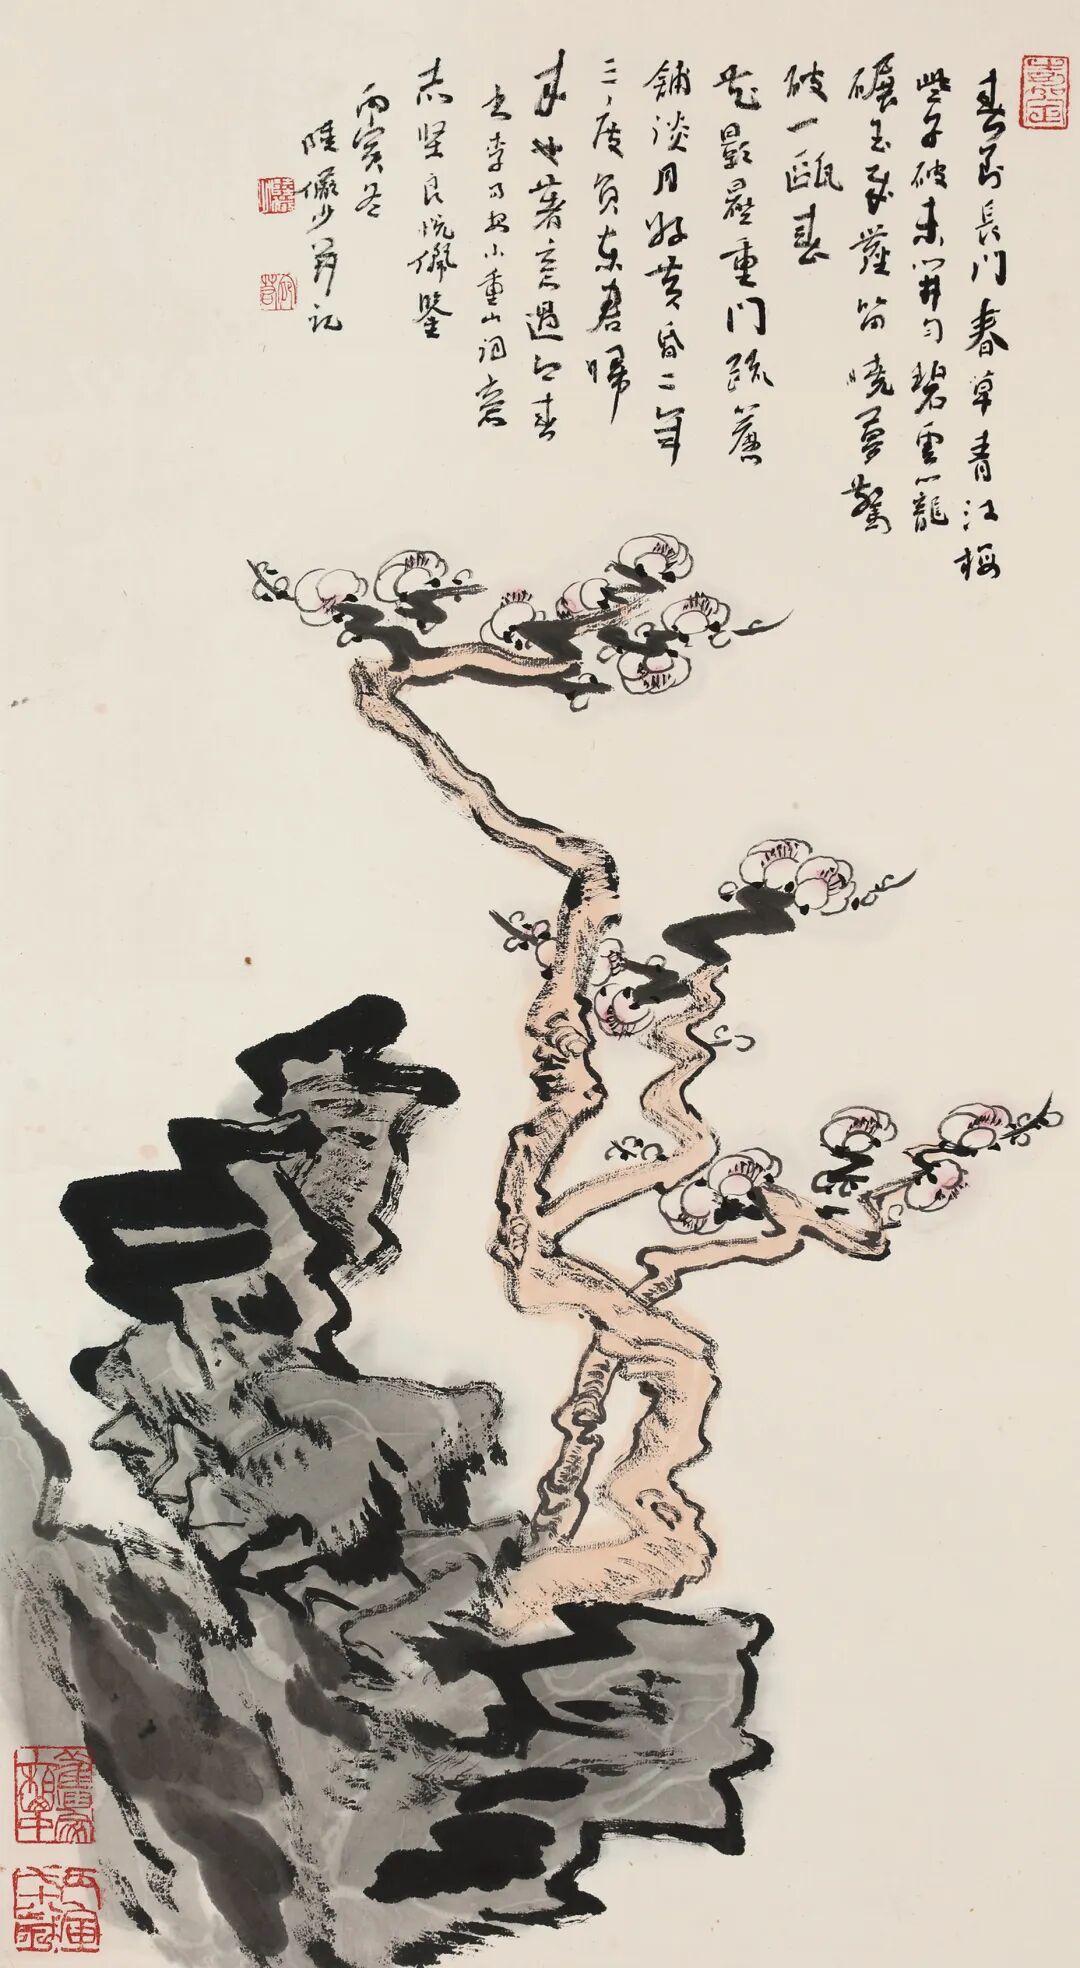 嘉定
春到長門春草青江梅
些子破未開勻碧雲籠
碾玉成塵留曉夢驚
破一甌春
花影壓重門疏簾
鋪淡月好黃昏二年
三度負東君歸
來也著意過今春
書李易安小重山詞意
志坚良悦鑒
丙寅冬
陸儼少并記
宛若